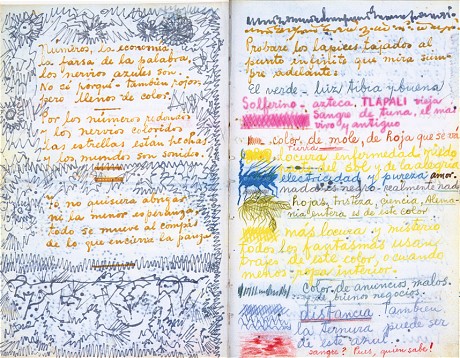 Números, la economía
la farsa de la palabra,
los nervios azules son.
No sé porqué – también rojos,
pero llenos de color.
Por los números redondos
y los nervios coloridos
las estrellas están hechas
y los mundos son sonidos.
Yo no quisiera abrigar
ni la menor esperanza,
todo se mueve al compás
de lo que encierra la panza
Probaré los lápices tajados al
punto infinito que mira siem-
pre adelante:
El verde – luz tibia y buena
Solferino – azteca. TLAPALI vieja
Sangre de tuna, el más
vivo y antiguo
color de mole, de hoja que se va
tierra
locura enfermedad miedo
parte del sol y de la alegría
electricidad y pureza amor.
nada es negro – realmente nada
hojas, tristeza, ciencia, Alema-
nia entera es de este color
más locura y misterio
todos los fantasmas usan
trajes de este color, o cuando
menos ropa interior.
Color de anuncios malos
y de buenos negocios.
distancia. También
la ternura puede ser
de este azul.
sangre? Pues, quien sabe!